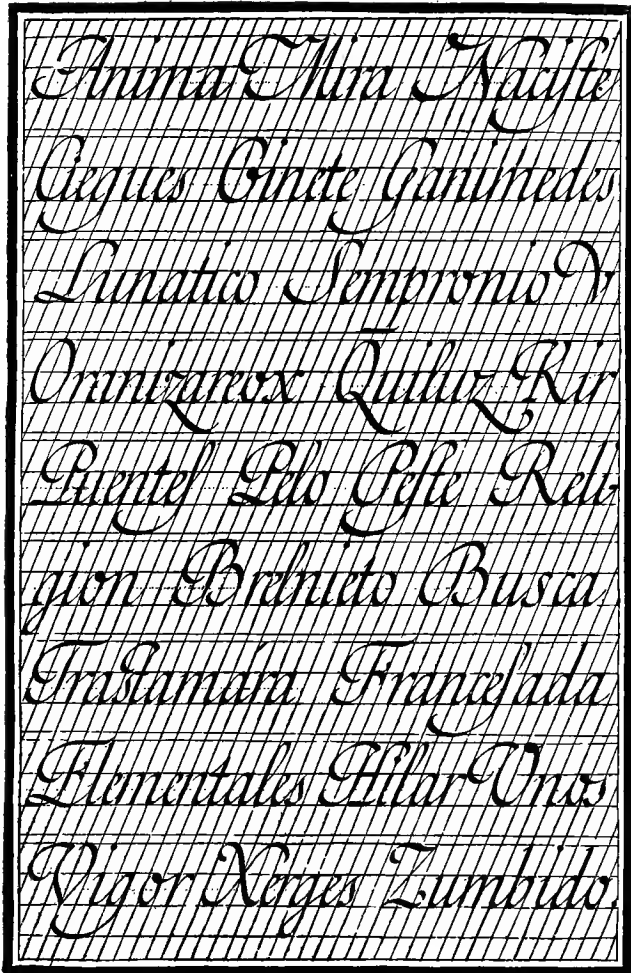 Anima Mira Naciſte
Ciegues Ginete Ganimedes
Lunatico Sempronio V
Omnizareox Quiluz Kir
Puenteſ Pelo Peſte Reli-
gion Breſnieto Busca
Traſtamára Franceſada
Elementales Hilar Vnos
Vigor Xerges Zumbido.